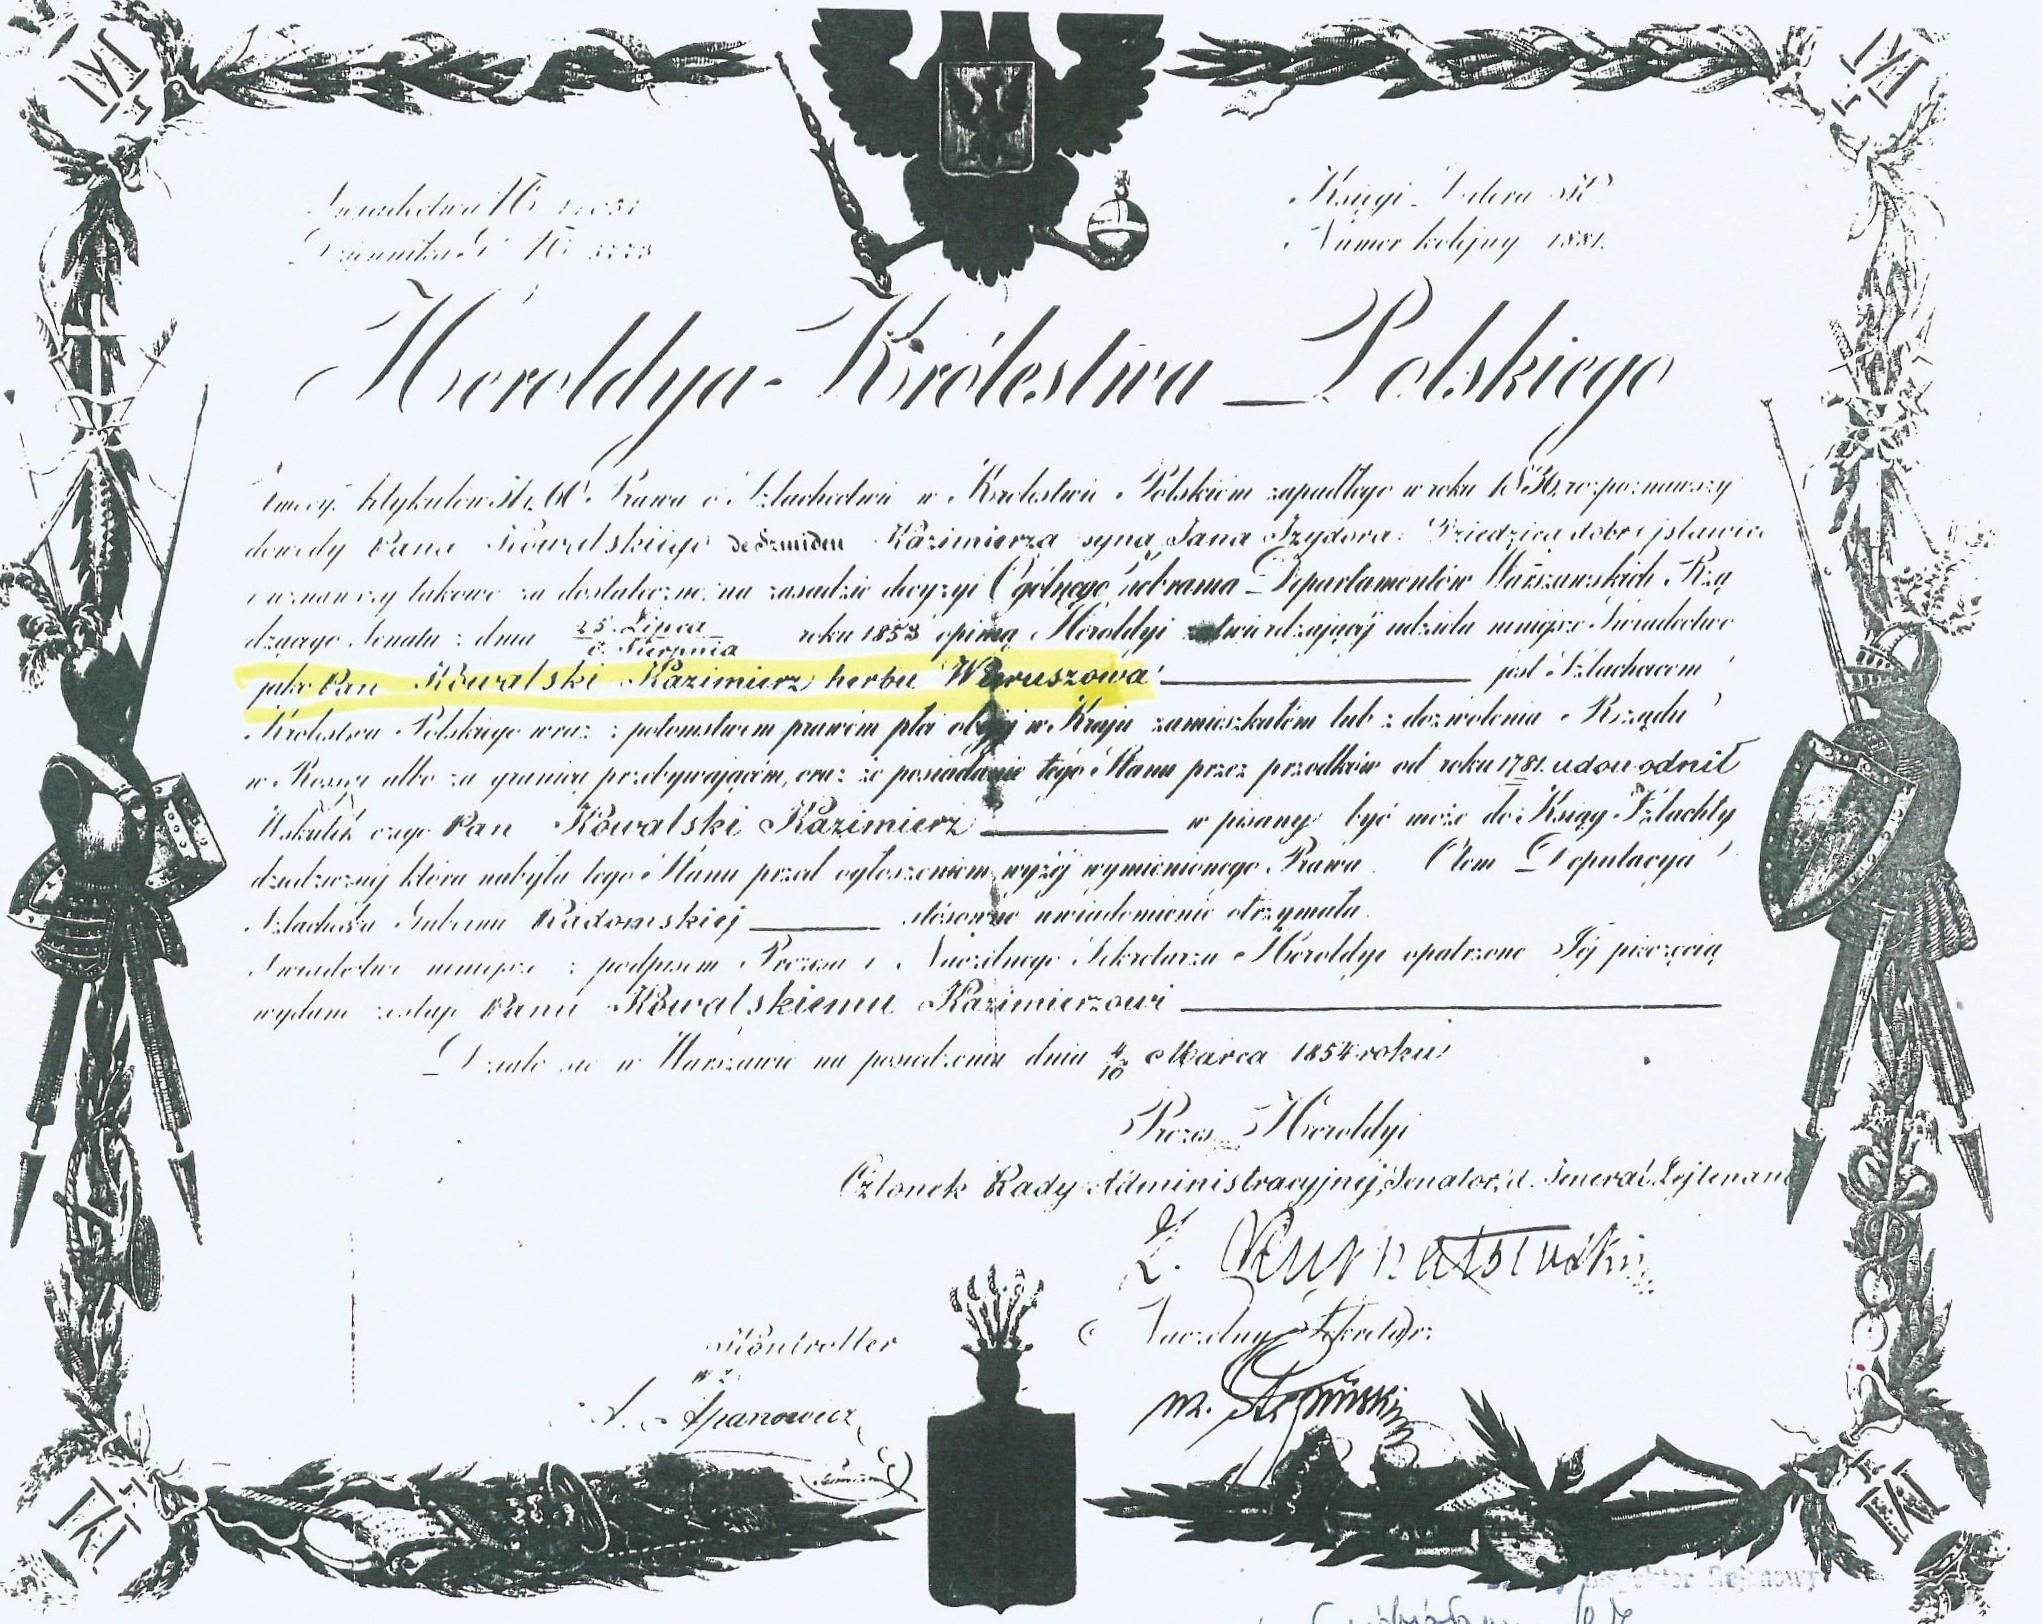 Świadectwa №
Dziennika G. №
Księgi Litera K
Numer kolejny 1881.
Heroldya Królestwa Polskiego
Artykułów 60 Prawa o Szlachectwie w Królestwie Polskiem zapadłego w roku 1836, rozpoznawszy
dowody Pana Kowalskiego Kazimierza syna Jana Izydora Dziedzica dobr
i uznawszy takowe za dostateczne, na zasadzie decyzyi Ogólnego Zebrania Departamentów Warszawskich Rzą
dzącego Senatu z dnia 25 Lipca / 6 Sierpnia roku 1853 opinią Heroldyi zatwierdzającej udziela niniejsze Świadectwo
jako Pan Kowalski Kazimierz herbu Wieruszowa jest Szlachcicem
Królestwa Polskiego wraz z potomstwem prawem płci obojej w Kraju zamieszkałem lub z dozwolenia Rządu
w Rossyi albo za granicą przebywającem, oraz że posiadanie tego Stanu przez przodków od roku 1781. udowodnił
Wskutek czego Pan Kowalski Kazimierz wpisany być może do Księgi Szlachty
dziedzicznej która nabyła tego Stanu przed ogłoszeniem wyżej wymienionego Prawa. O tem Deputacya
Szlachecka Gubernii Radomskiej stosowne uwiadomienie otrzymała.
Świadectwo niniejsze z podpisem Prezesa i Naczelnego Sekretarza Heroldyi opatrzone Jej pieczęcią
wydane zostaje Panu Kowalskiemu Kazimierzowi
Działo się w Warszawie na posiedzeniu dnia Marca 1854 roku
Prezes Heroldyi
Członek Rady Administracyjnej, Senator, Generał Lejtenant
Naczelny Sekretarz
Kontroller
wz.